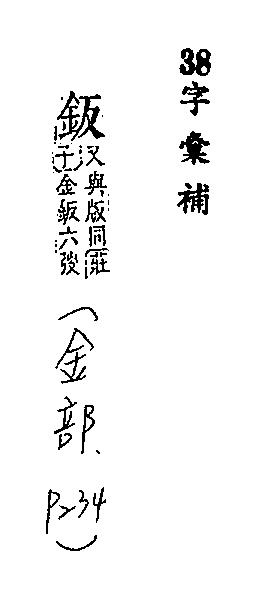 38字彙補
鈑又與版同莊
子金鈑六弢
(金部、P234)